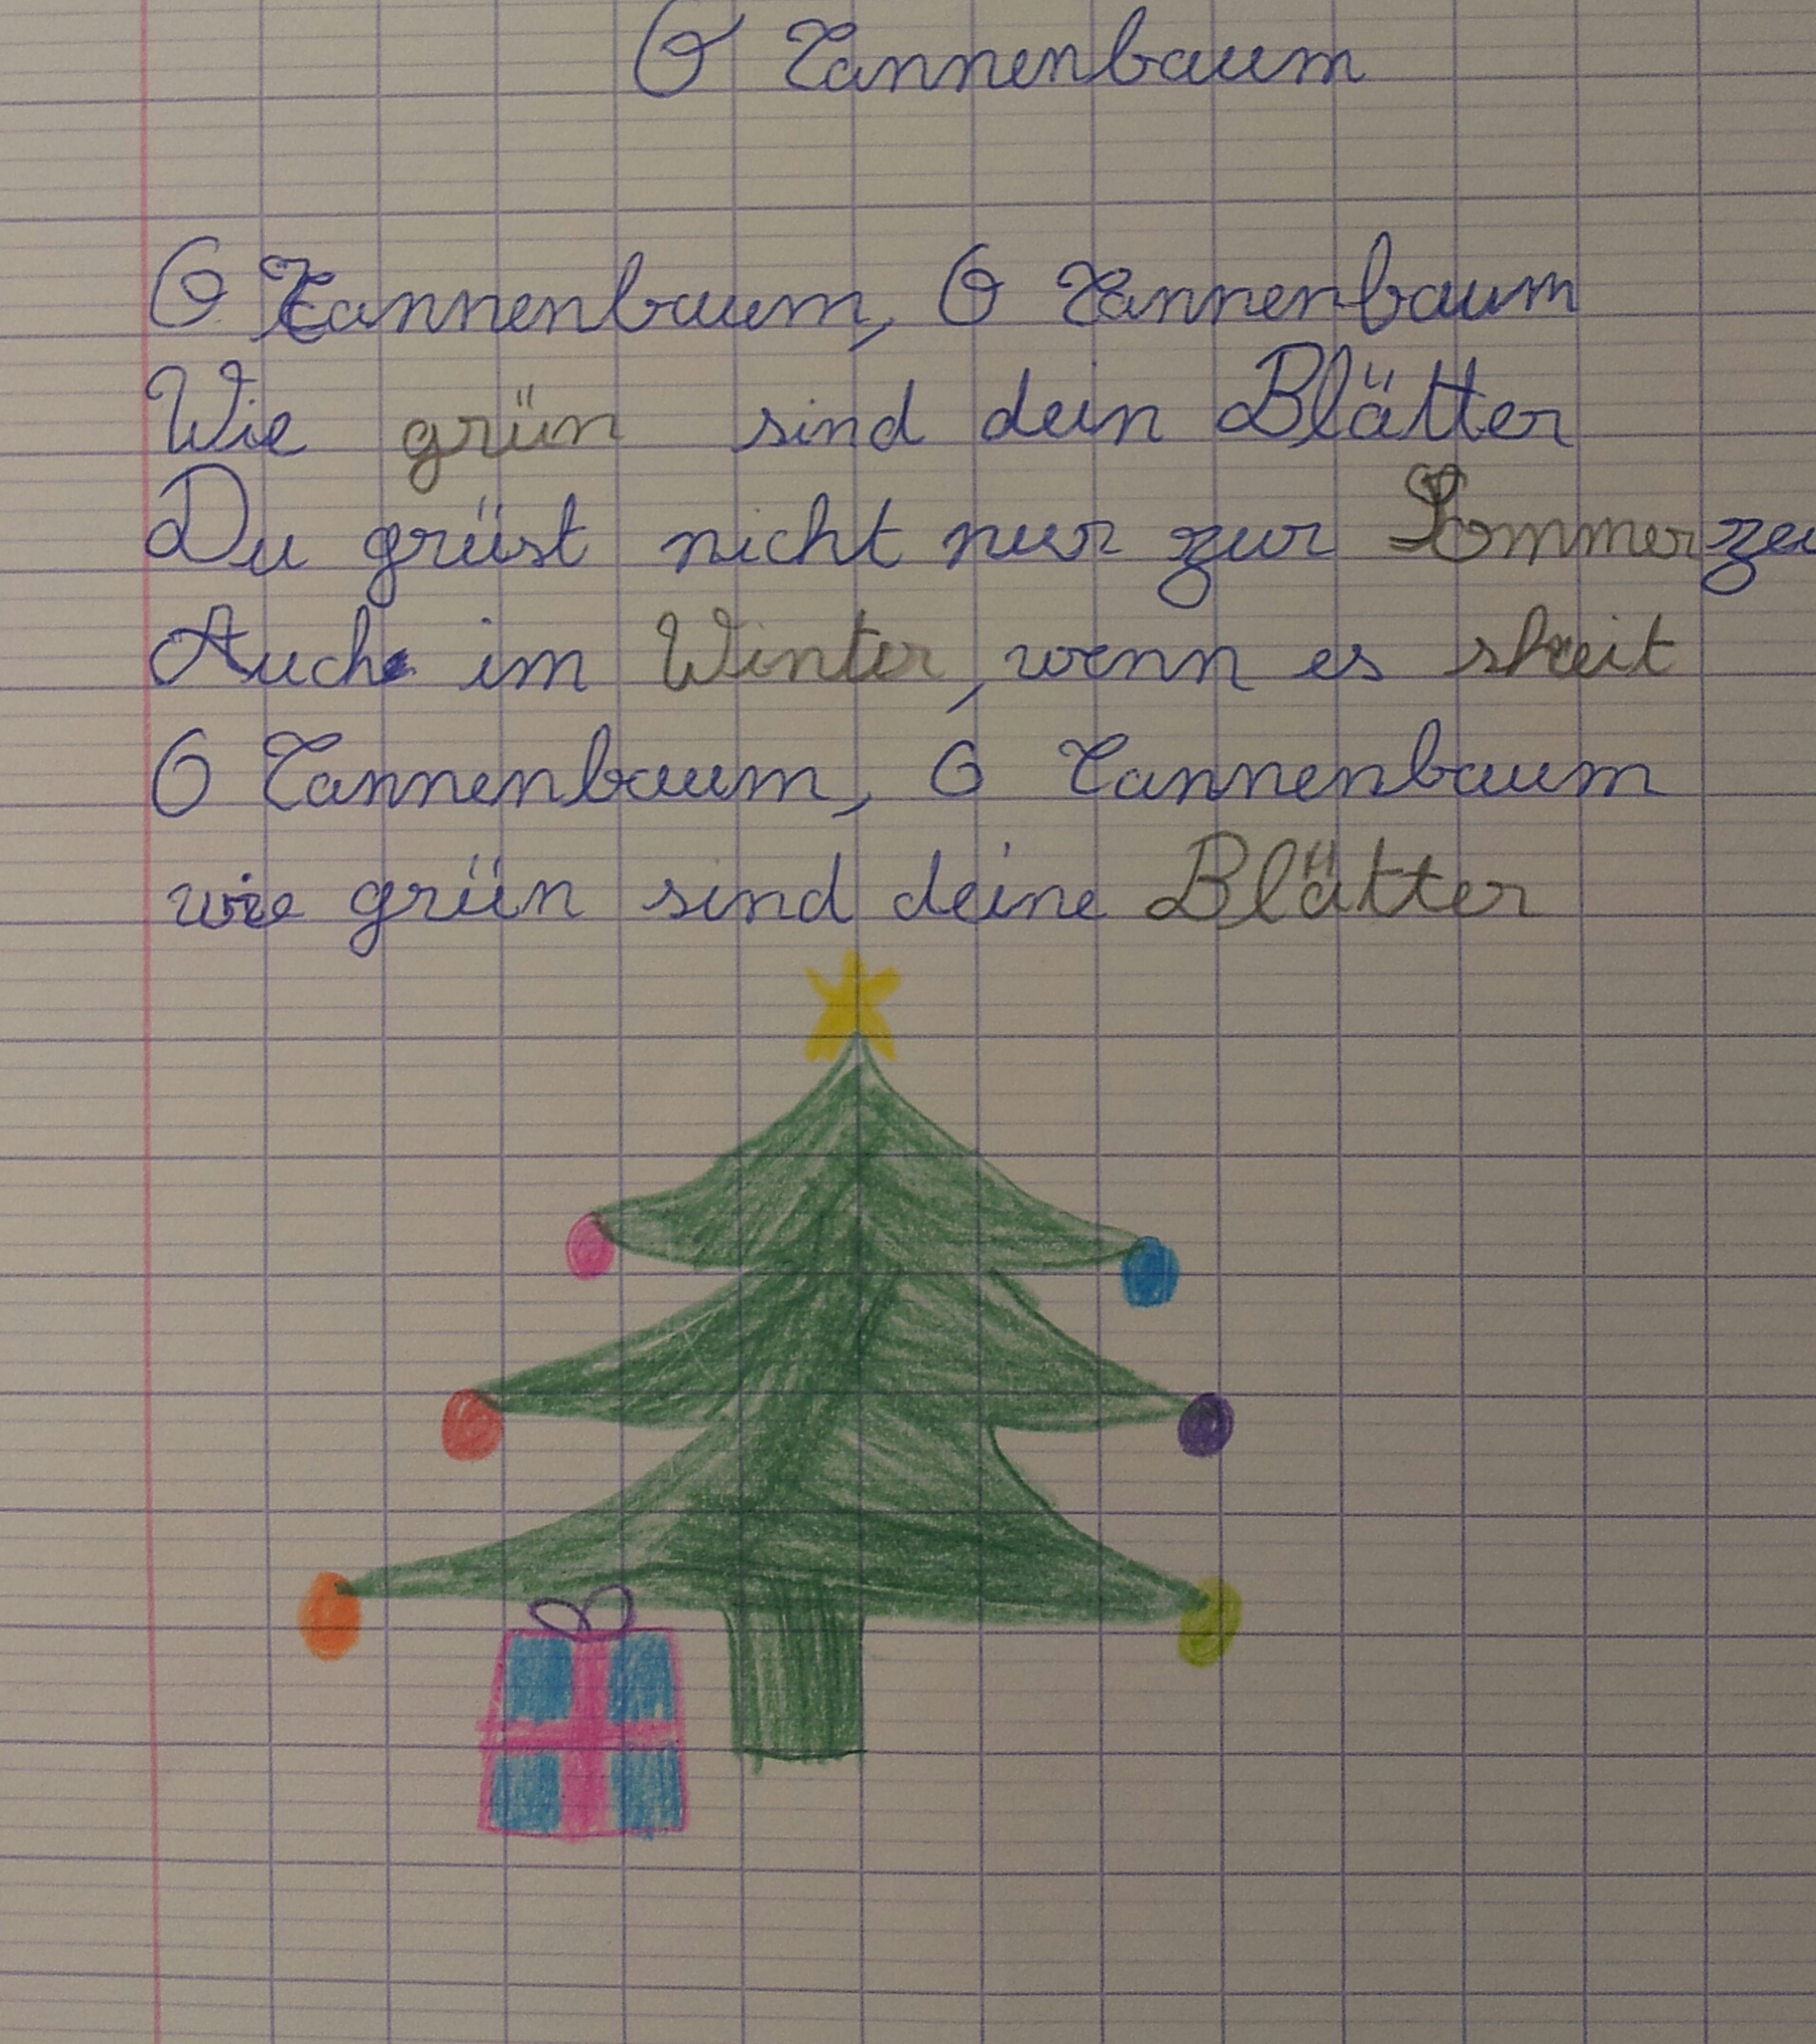 O Tannenbaum
O Tannenbaum, O Tannenbaum
Wie grün sind dein Blätter
Du grüst nicht nur zur Sommerzei
Auch im Winter, wenn es shreit
O Tannenbaum, O Tannenbaum
wie grün sind deine Blätter